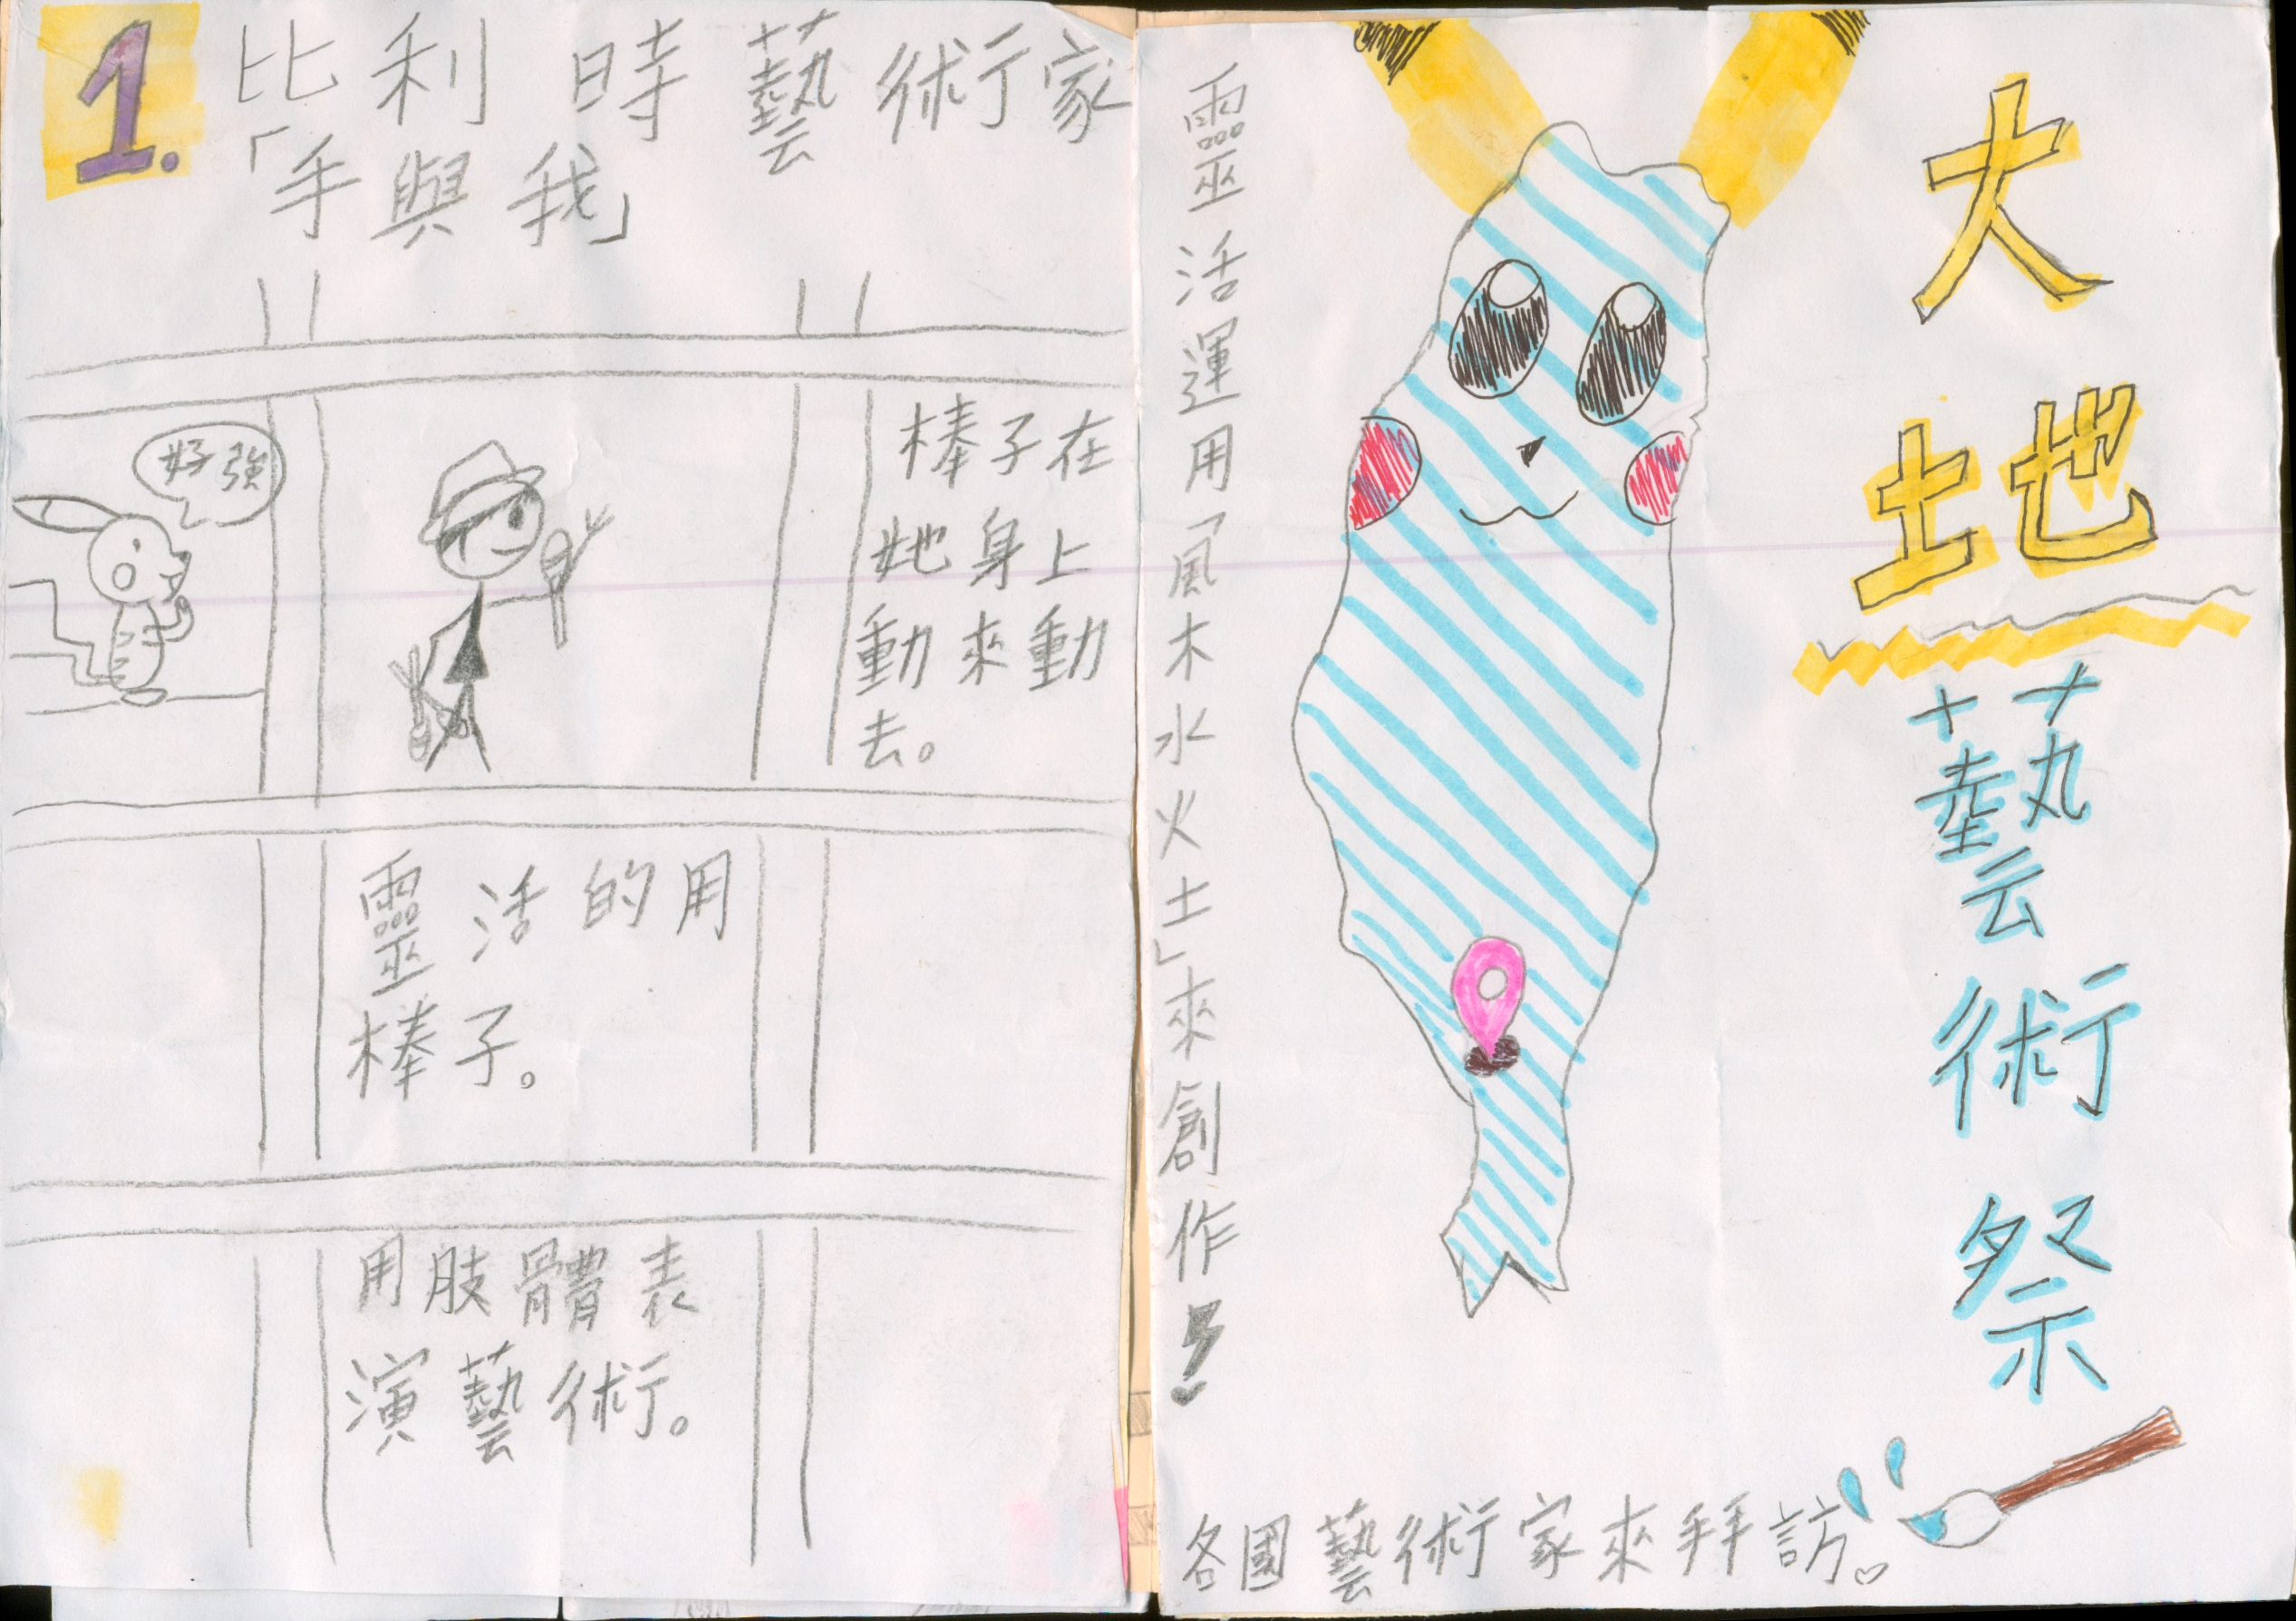 1.
比利時藝術家
「手與我」
好強
棒子在
她身上
動來動
去。
靈活的用
棒子。
用肢體表
演藝術。
大地
藝術祭
靈活運用「風木水火土」來創作!
各國藝術家來拜訪。